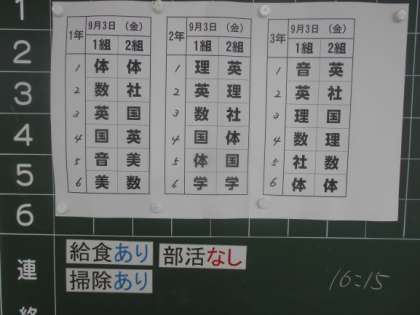 1
2
3
4
5
6
連
絡
1年 9月3日 (金)
1組 2組
1 体 体
2 数 社
3 英 国
4 国 英
5 音 美
6 美 数
2年 9月3日 (金)
1組 2組
1 理 英
2 英 理
3 数 社
4 国 体
5 体 国
6 学 学
3年 9月3日 (金)
1組 2組
1 音 英
2 英 社
3 理 国
4 数 理
5 社 数
6 体 体
給食あり 部活なし
掃除あり
16:15